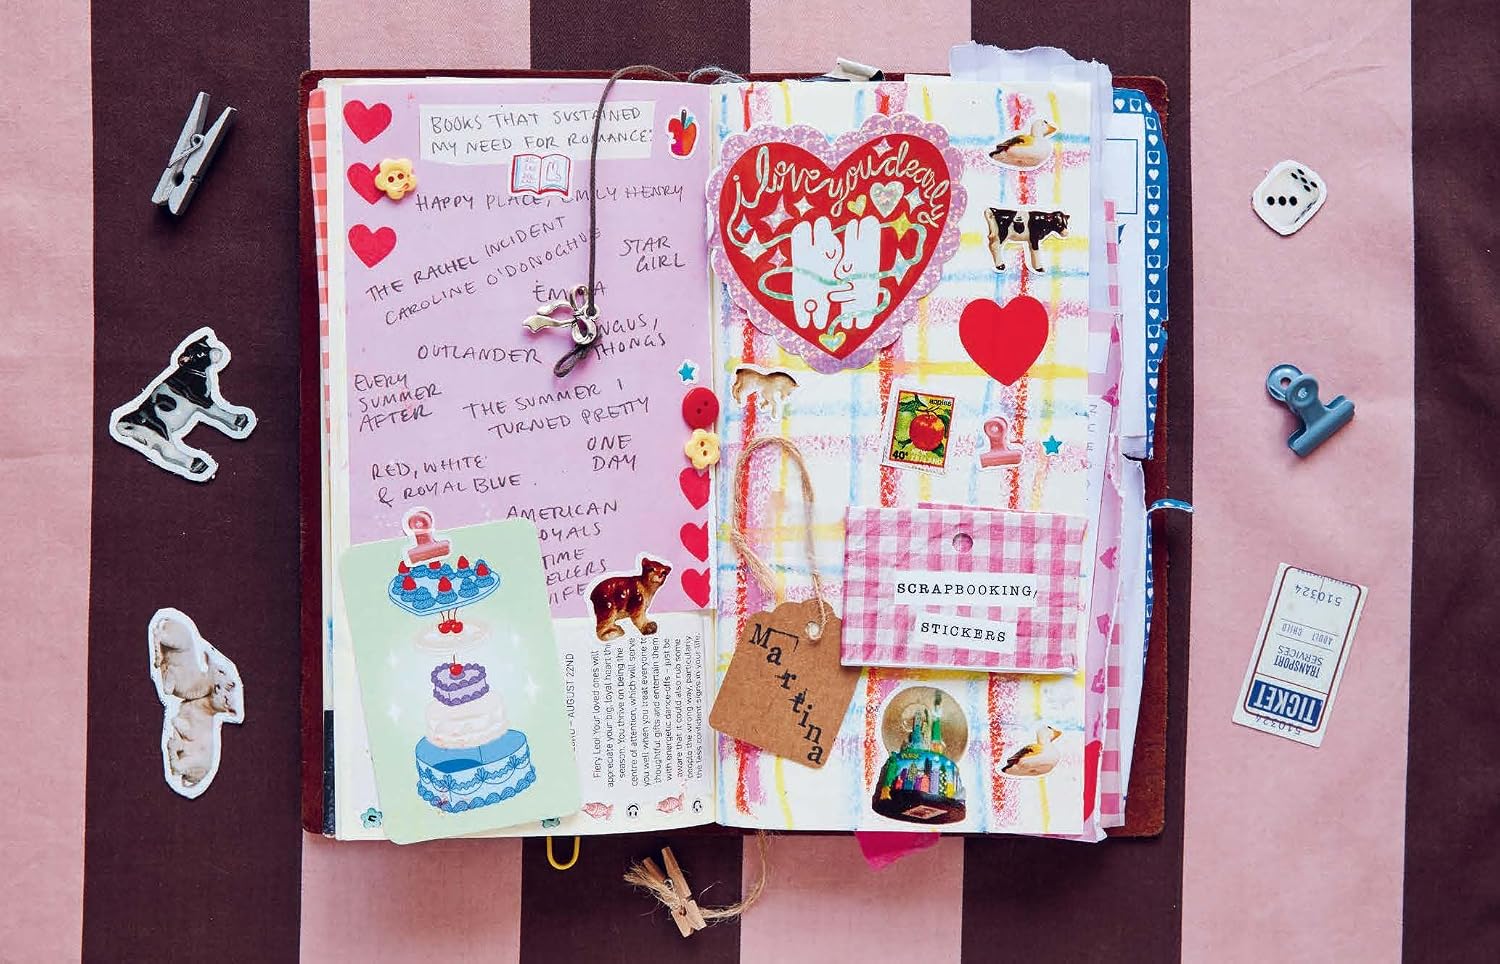 BOOKS THAT SUSTAINED
MY NEED FOR ROMANCE:
HAPPY PLACE, EMILY HENRY
THE RACHEL INCIDENT
CAROLINE O'DONOGHUE
STAR
GIRL
EMMA
NGUS,
THONGS
OUTLANDER
EVERY
SUMMER
AFTER
THE SUMMER I
TURNED PRETTY
ONE
DAY
RED, WHITE
& ROYAL BLUE.
AMERICAN
OYALS
TIME
ELLERS
IFE
AUGUST 22ND
Fiery Leo! Your loved ones will
appreciate your big, loyal heart thi
season. You thrive on being the
centre of attention, which will serve
you well when you treat everyone to
thoughtful gifts and entertain them
with energetic dance-offs – just be
aware that it could also rub some
people the wrong way, particularly
the less confident signs in your life.
i love you dearly
apples
40c
NEW
ZEALAND
SCRAPBOOKING/
STICKERS
Martina
510324
ADULT CHILD
TRANSPORT
SERVICES
TICKET
510324